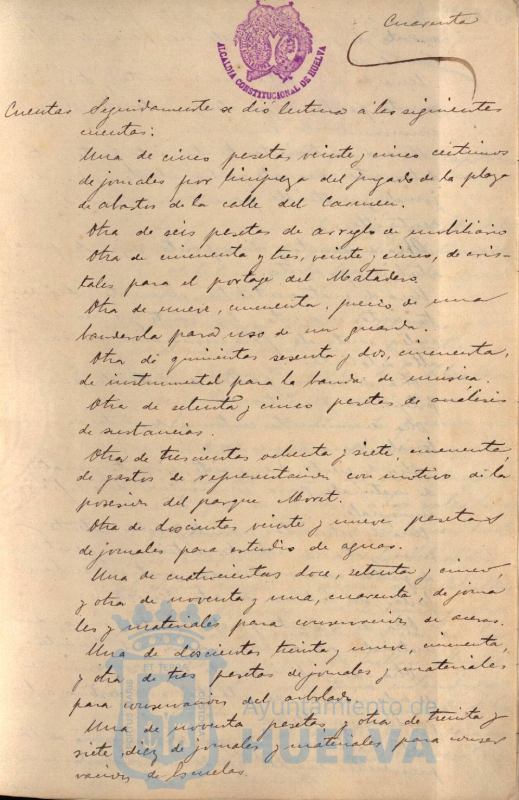 Cuarenta
ALCALDIA CONSTITUCIONAL DE HUELVA
Cuentas Seguidamente se dio lectura a las siguientes
cuentas:
Una de cinco pesetas veinte y cinco centimos
de jornales por limpieza del juzgado de la plaza
de abastos de la calle del Carmen.
Otra de seis pesetas de arreglo de mobiliario
Otra de cincuenta y tres, veinte y cinco, de cris-
tales para el portaje del Matadero.
Otra de nueve, cincuenta, precio de una
banderola para uso de un guarda.
Otra de quinientas sesenta y dos, cincuenta,
de instrumental para la banda de música.
Otra de setenta y cinco pesetas de análisis
de sustancias.
Otra de trescientas ochenta y siete, cincuenta,
de gastos de representacion con motivo de la
posesion del parque Moret.
Otra de doscientas veinte y nueve pesetas
de jornales para estudio de aguas.
Una de cuatrocientas doce, setenta y cinco,
y otra de noventa y una, cuarenta, de jorna
les y materiales para conservacion de aceras.
Una de doscientas treinta y nueve, cincuenta,
y otra de tres pesetas de jornales y materiales
para conservacion del arbolado
Una de noventa pesetas y otra de treinta y
siete, diez, de jornales y materiales para conser
vacion de Escuelas.
Ayuntamiento de
HUELVA